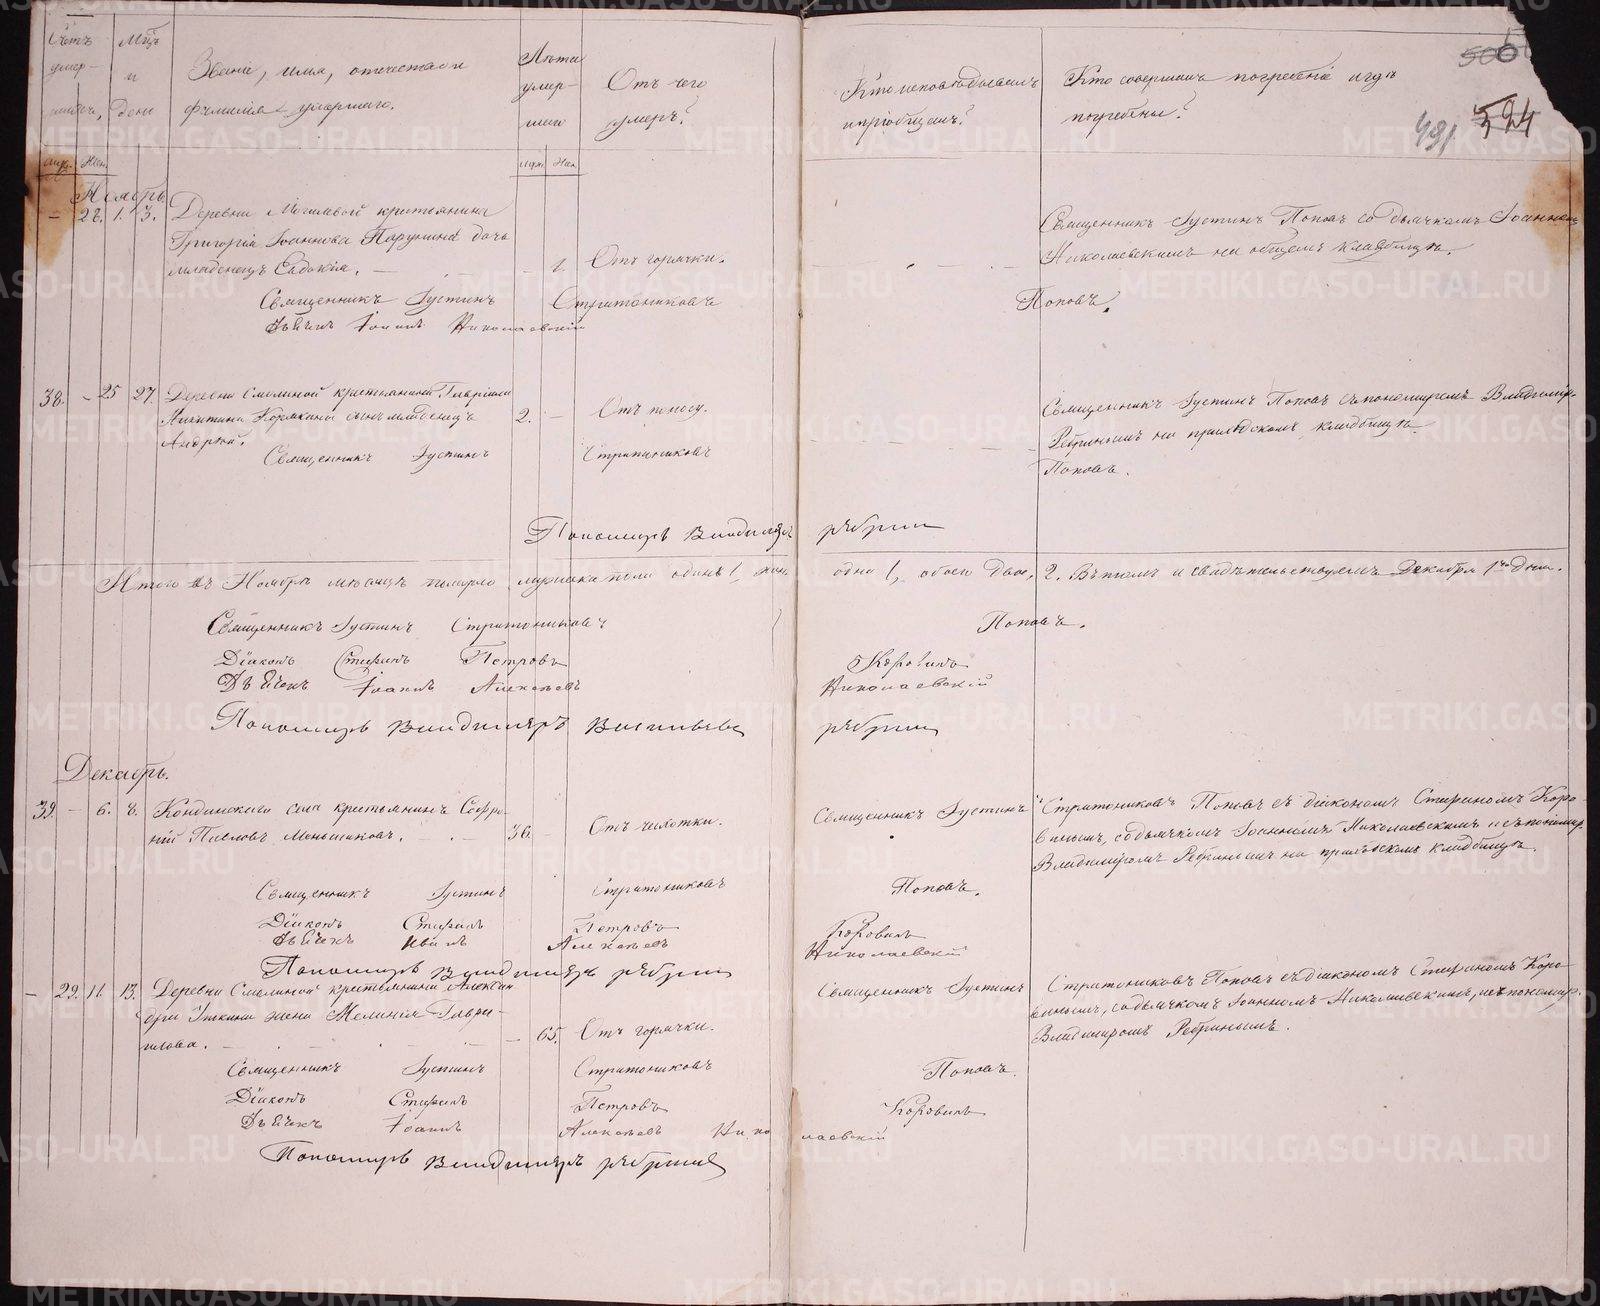 Счетъ умер- шихъ, Мцъ и день
Званіе, имя, отечество и фамилія умершаго.
Лѣта умер- шаго
Отъ чего умеръ?
Кто исповѣдывалъ и пріобщалъ?
Кто совершалъ погребеніе и гдѣ погребены?
500
491 524
Муж. Жен. Муж. Жен.
Ноябрь
– 28. 1. 3. Деревни крестьянина
Григорія Іоаннова Парунина дочь
младенецъ Евдокія. – – 1. Отъ горячки.
Священникъ Іустинъ Поповъ со дьячкомъ Іоанномъ
Николаевскимъ на общемъ кладбищѣ.
Священникъ Іустинъ Стратониковъ Поповъ.
Дьячекъ Іоаннъ Николаевскій
38. – 25 27. Деревни Смолиной крестьянина Гавріила
Никитина Корякина сынъ младенецъ 2. – Отъ поносу.
Андрей.
Священникъ Іустинъ Поповъ съ пономаремъ Владимір.
Ребринымъ на приходскомъ кладбищѣ.
Священникъ Іустинъ Стратониковъ Поповъ.
Пономарь Владимѣръ рѣбрин
Итого въ Ноябрѣ мѣсяцѣ померло мужска пола одинъ 1, жен. одна 1, обоего двое, 2. Въ томъ и свидѣтельствуемъ Декабря 1го дня.
Священникъ Іустинъ Стратониковъ Поповъ.
Діаконъ Стефанъ Петровъ Коровинъ
Дьячекъ Іоаннъ Алексѣевъ Николаевскій
Пономарь Владимѣръ Васильевъ рѣбрин
Декабрь.
39. – 6. 8. крестьянинъ Софро-
ній Павловъ Меньшиковъ. – 36. – Отъ чихотки.
Священникъ Іустинъ Стратониковъ Поповъ съ діакономъ Стефаномъ Коро-
винымъ, со дьячкомъ Іоанномъ Николаевскимъ и съ пономар.
Владиміромъ Ребринымъ на приходскомъ кладбищѣ.
Священникъ Іустинъ Стратониковъ Поповъ.
Діаконъ Стефанъ Петровъ Коровинъ
Дьячекъ Иванъ Алексѣевъ Николаевскій
Пономарь Владимѣръ рѣбрин
– 29. 11. 13. Деревни Смолиной крестьянина Алексан-
дра жена Меланія Гаври-
илова. – – 65. Отъ горячки.
Священникъ Іустинъ Стратониковъ Поповъ съ діакономъ Стефаномъ Коро-
винымъ, со дьячкомъ Іоанномъ Николаевскимъ, и съ пономар.
Владиміромъ Ребринымъ.
Священникъ Іустинъ Стратониковъ Поповъ.
Діаконъ Стефанъ Петровъ Коровинъ
Дьячекъ Іоаннъ Алексѣевъ Николаевскій
Пономарь Владимѣръ рѣбрин
METRIKI.GASO-URAL.RU